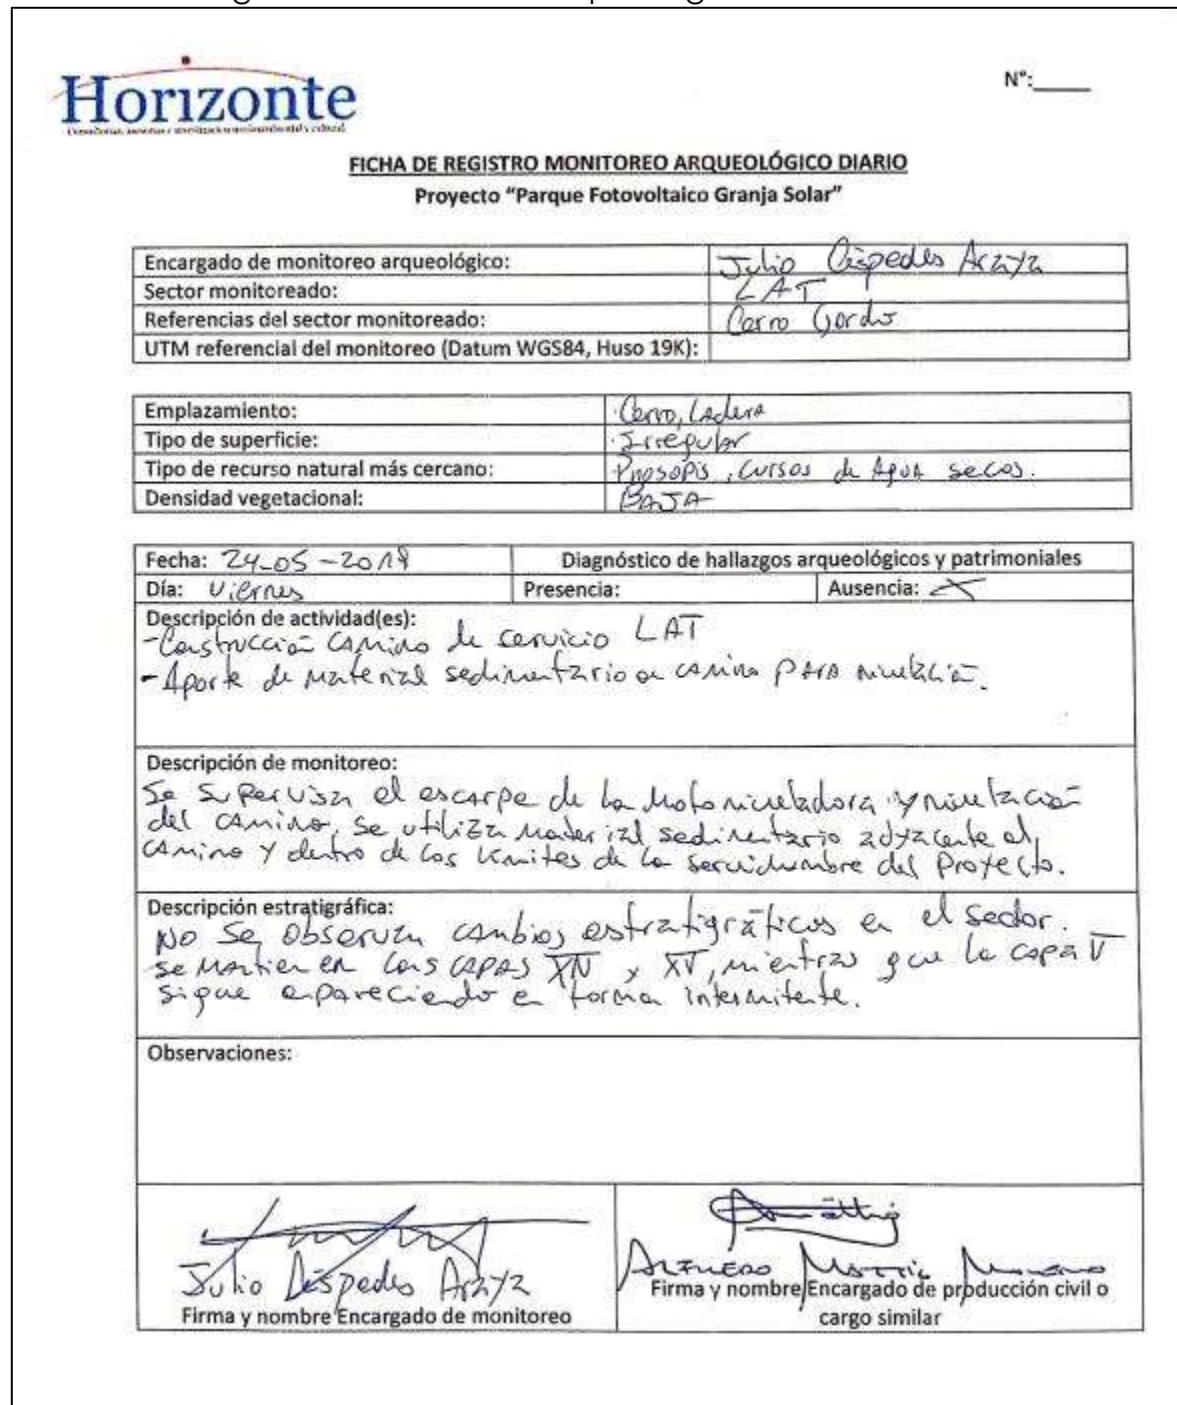 Horizonte
N°:_____
FICHA DE REGISTRO MONITOREO ARQUEOLÓGICO DIARIO
Proyecto "Parque Fotovoltaico Granja Solar"
Encargado de monitoreo arqueológico: Julio Céspedes Araya
Sector monitoreado: LAT
Referencias del sector monitoreado: Cerro Gordo
UTM referencial del monitoreo (Datum WGS84, Huso 19K):
Emplazamiento: Cerro, Ladera
Tipo de superficie: Irregular
Tipo de recurso natural más cercano: Prosopis, cursos de Agua secos.
Densidad vegetacional: BAJA
Fecha: 24-05-2019 Diagnóstico de hallazgos arqueológicos y patrimoniales
Día: Viernes Presencia: Ausencia: X
Descripción de actividad(es):
- Construcción camino de servicio LAT
- Aporte de material sedimentario en camino para nivelación.
Descripción de monitoreo:
Se supervisa el escarpe de la motoniveladora y nivelación
del camino, se utiliza material sedimentario adyacente al
camino y dentro de los límites de la servidumbre del Proyecto.
Descripción estratigráfica:
No se observan cambios estratigráficos en el sector.
se mantienen las capas y XV, mientras que la capa V
sigue apareciendo en forma intermitente.
Observaciones:
Julio Céspedes Araya
Firma y nombre Encargado de monitoreo
Firma y nombre Encargado de producción civil o
cargo similar